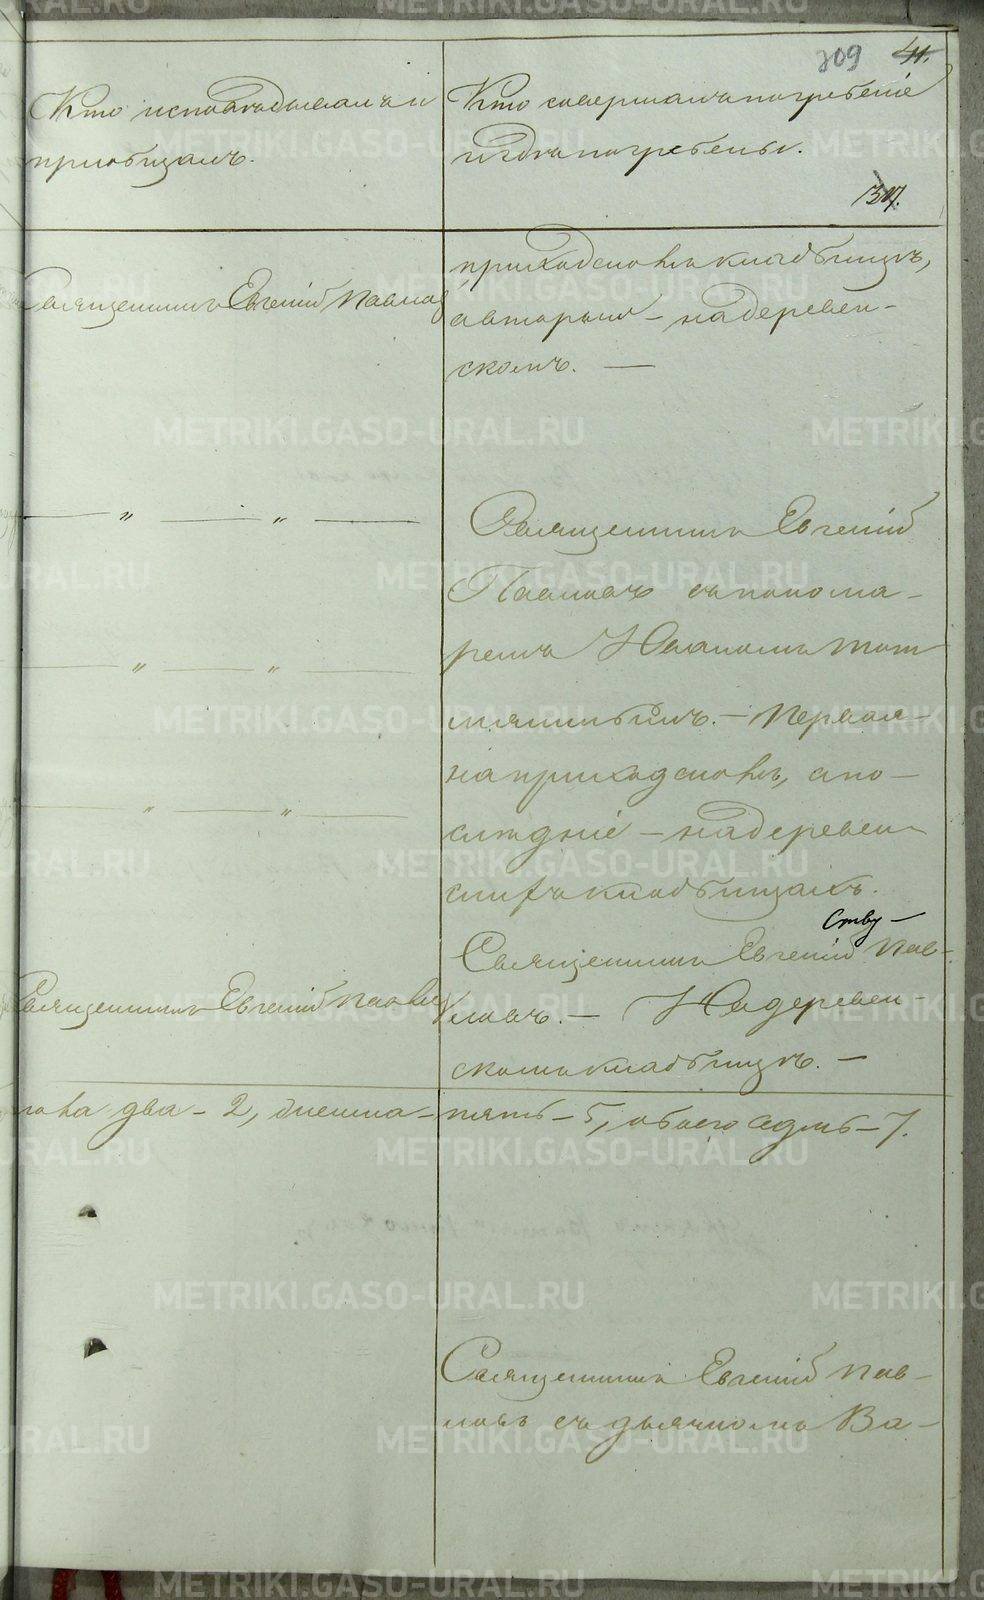 709 41.
Кто исповѣдывалъ и
пріобщалъ.
Кто совершалъ погребеніе
и гдѣ погребены.
307.
Священникъ Евгеній Павлов
приходскомъ кладбищѣ,
а вторый – на деревен-
скомъ. —
— „ — „ —
Священникъ Евгеній
Павловъ съ понома-
ремъ
— „ — „ —
– Первая –
на приходскомъ, а по-
— „ — „ —
слѣдніе – на деревен-
скихъ кладбищахъ.
Священникъ Евгеній Павлов
Священникъ Евгеній Пав-
ловъ. – На деревен-
скомъ кладбищѣ. —
пола два – 2, женска- пять – 5, обоего седмь – 7.
Священникъ Евгеній Пав-
ловъ съ дьячкомъ Ва-
METRIKI.GASO-URAL.RU